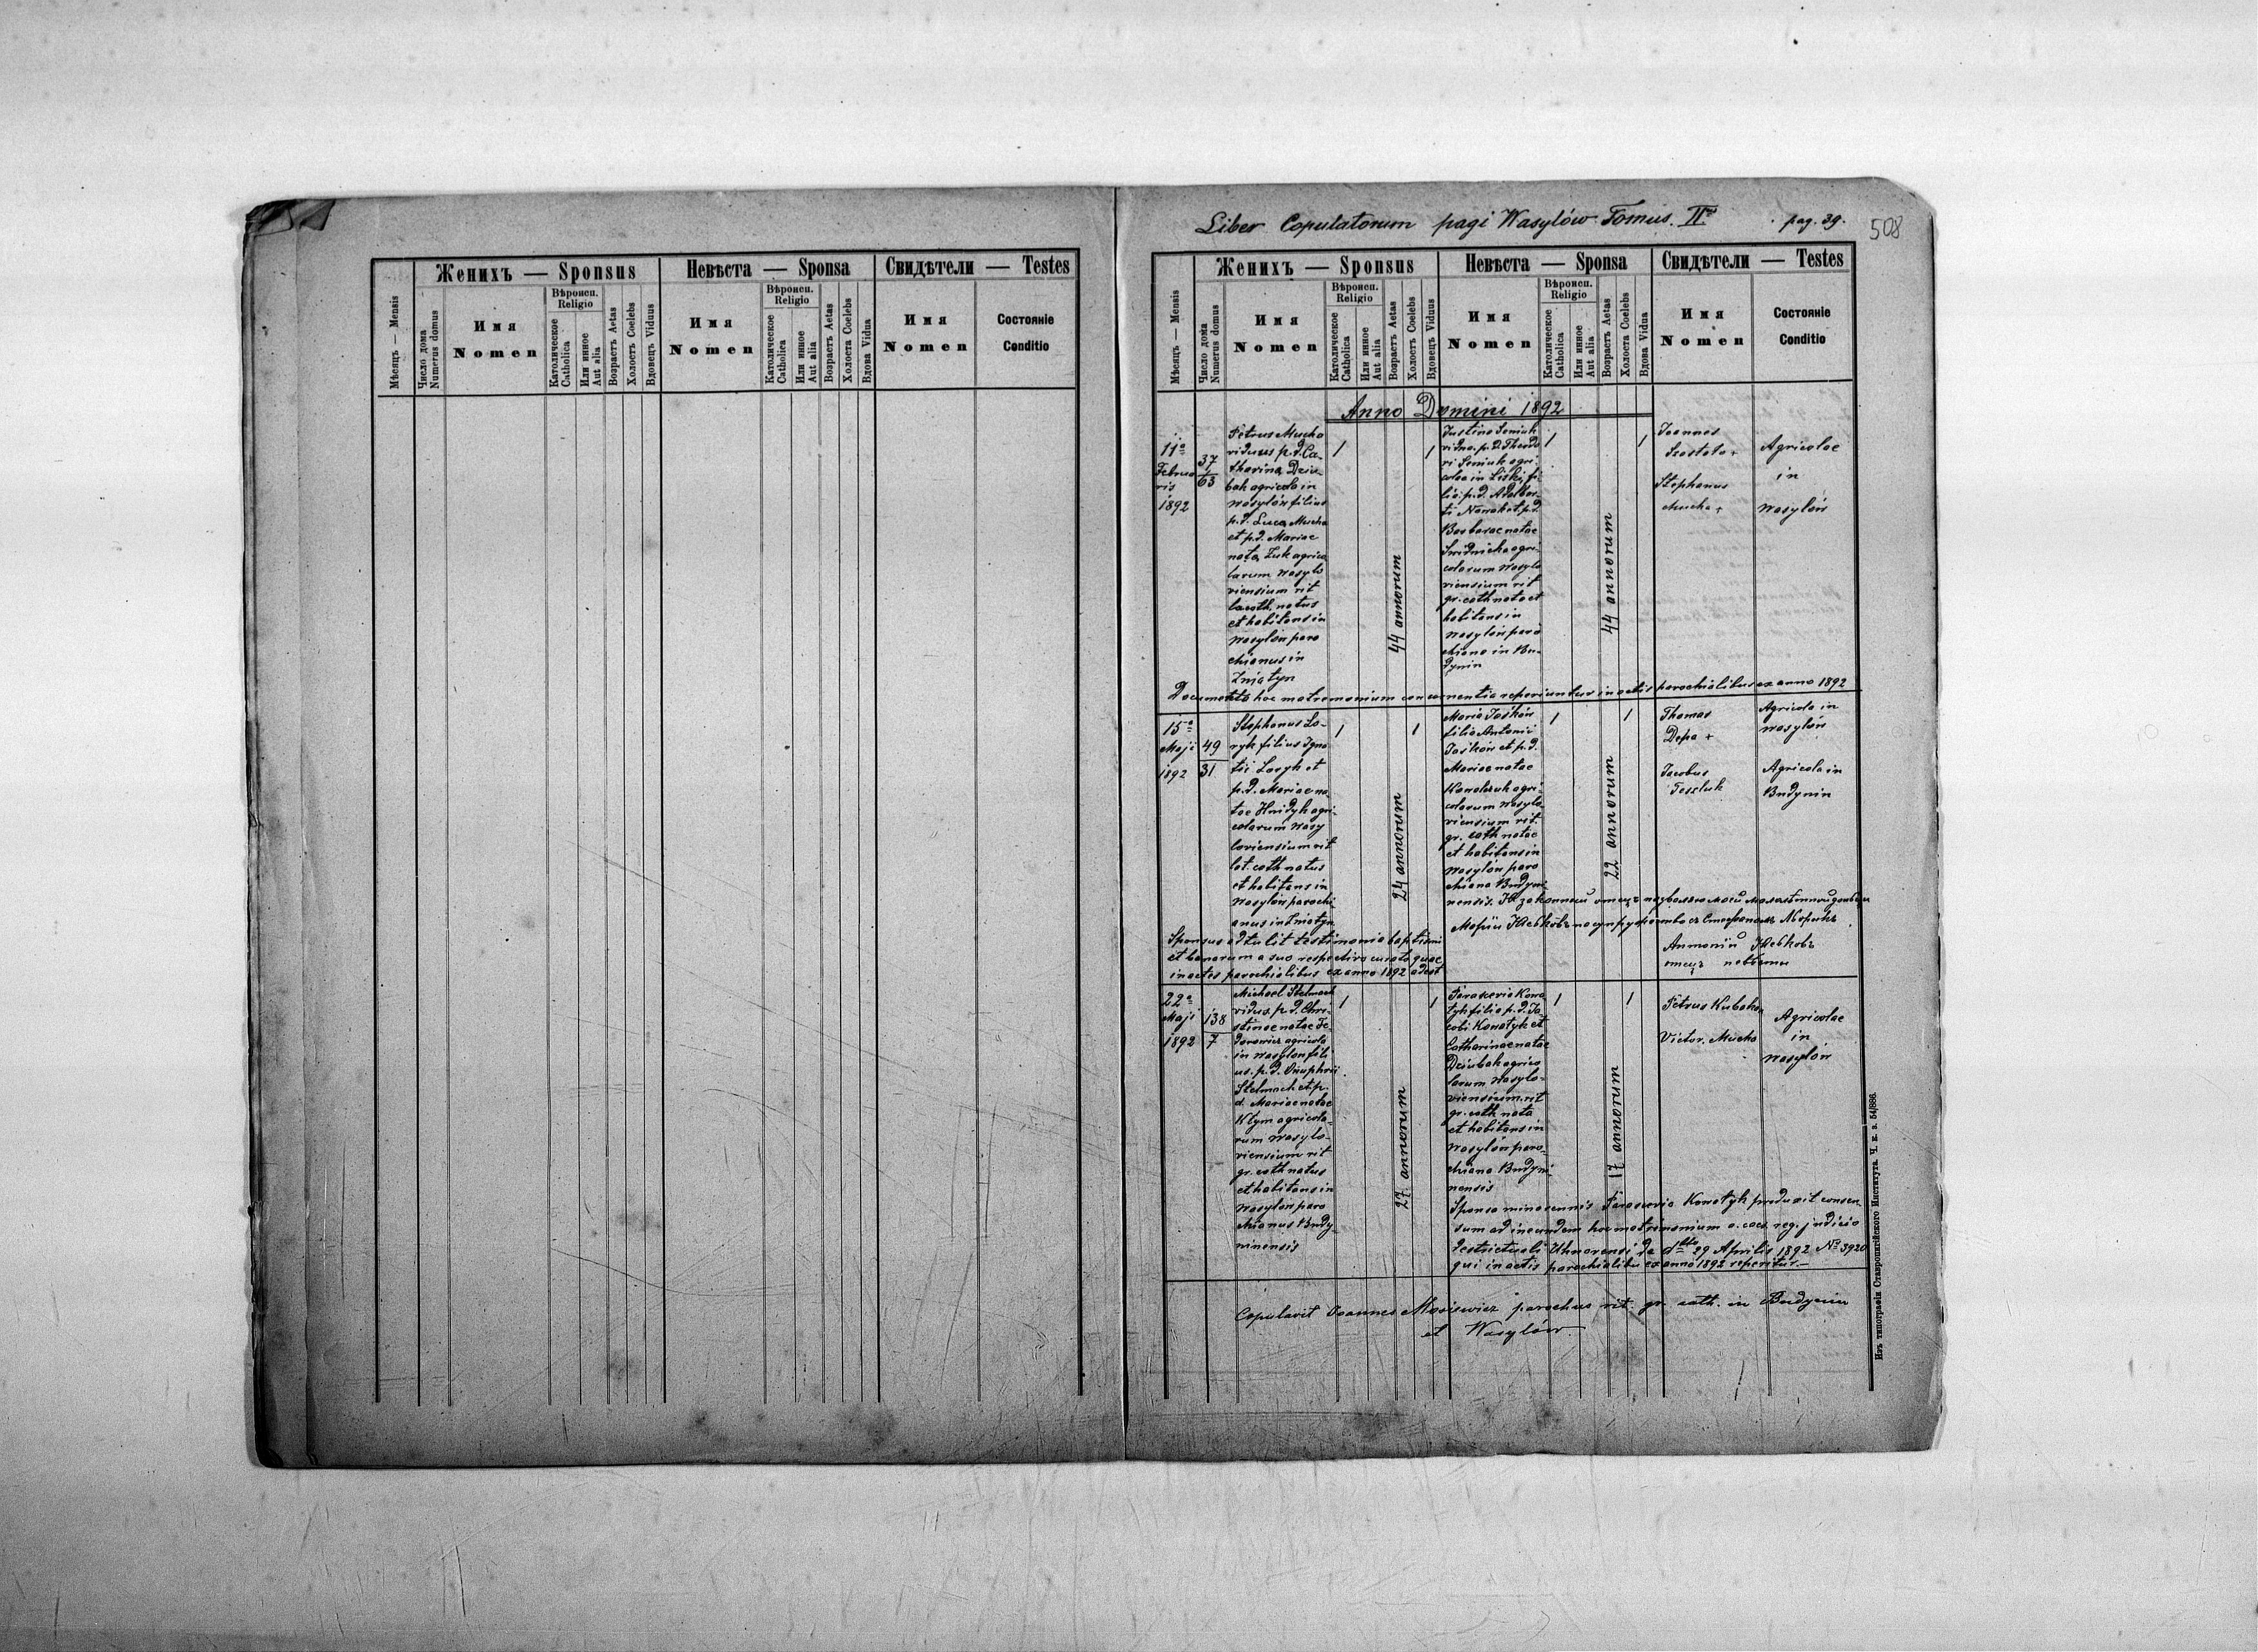 Liber Copulatorum pagi Wasylów Tomus. II
pag. 39.
508
Женихъ — Sponsus
Невѣста — Sponsa
Свидѣтели — Testes
Мѣсяцъ — Mensis
Число дома
Numerus domus
Имя
Nomen
Вѣроисп.
Religio
Католическое
Catholica
Или инное
Aut alia
Возрастъ Aetas
Холостъ Coelebs
Вдовецъ Viduus
Имя
Nomen
Вѣроисп.
Religio
Католическое
Catholica
Или инное
Aut alia
Возрастъ Aetas
Холоста Coelebs
Вдова Vidua
Имя
Nomen
Состояніе
Conditio
Женихъ — Sponsus
Невѣста — Sponsa
Свидѣтели — Testes
Мѣсяцъ — Mensis
Число дома
Numerus domus
Имя
Nomen
Вѣроисп.
Religio
Католическое
Catholica
Или инное
Aut alia
Возрастъ Aetas
Холостъ Coelebs
Вдовецъ Viduus
Имя
Nomen
Вѣроисп.
Religio
Католическое
Catholica
Или инное
Aut alia
Возрастъ Aetas
Холоста Coelebs
Вдова Vidua
Имя
Nomen
Состояніе
Conditio
Anno Domini 1892
11a
Februa
ris
1892
37
63
Petrus Mucha
viduus p.d. Ca-
tharina Dziu-
bak agricola in
Wasylów filius
p.d. Luca Mucha
et p.d. Mariae
nata Zuk agrico
larum Wasylo
viensium rit
la coth. natus
et habitans in
Wasylów paro
chianus in
Zniatyn
1
44 annorum
1
Justina Seniuk
vidua p.d. Theodo
ri Seniuk agri
colae in Liski, fi
lia p.d. Adalber
ti Nowak et p.d.
Barbarae natae
agri-
colarum Wasylo
viensium rit
gr. cath nata et
habitans in
Wasylów paro
chiana in Bu-
dynin
1
44 annorum
1
Joannes
+
Stephanus
Mucha +
Agricolae
in
Wasylów
Documenta hoc matremonium concernentia reperiuntur in actis parochialibus ex anno 1892
15a
Maji
1892
49
31
Stephanus Lo-
ryk filius Igna
tii Loryk et
p.d. Mariae na
tae Hnidyk agri-
colarum Wasy
loviensium rit
lat. cath natus
et habitans in
Wasylów parochi
anus in Zniatyn
1
24 annorum
1
Maria Jaśków
filia Antonii
Jaśków et p.d.
Mariae natae
Kowalczuk agri-
colarum Wasylo
viensium rit.
gr. cath natae
et habitans in
Wasylów paro
chiana Budyni
nensis.
1
22 annorum
1
Thomas
Depa +
Jacobus
Tesluk
Agricola in
Wasylów
Agricola in
Budynin
Sponsus adtulit testimonia baptismi
et banorum a suo respectivo curato quae
in actis parochialibus ex anno 1892 adest
Антоній
отецъ невѣсты
22a
Maji
1892
138
7
Michael Stelmach
vidus. p.d. Chri-
stinae natae Fe-
dorowicz agricola
in Wasylów fili
us. p.d. Onuphrii
Stelmach et p.
d. Mariae natae
Klym agricola-
rum Wasylo-
viensium rit
gr. cath natus
et habitans in
Wasylów paro
chianus Budy-
ninensis
1
27 annorum
1
Parascevia Kona
tyk filia p.d. Ja-
cobi Konatyk et
Catharinae natae
Dziubak agrico
larum Wasylo-
viensium rit
gr. cath nata
et habitans in
Wasylów paro-
chiana Budyni
nensis
1
17 annorum
1
Petrus Kubaha
Victor. Mucha
Agricolae
in
Wasylów
Sponsa minorennis Parascevia Konatyk produxit consen
sum ad ineundem hoc matrimonium a caes. reg. judicio
destrictuali Uhnoviensi de dto 29 Aprilis 1892 No 3920
qui in actis parochialibus ex anno 1892 reperitur.—
Copulavit Joannes Mosiewicz parochus rit. gr. cath. in Budynin
et Wasylów.
Изъ типографіи Ставропигійского Института. Ч. к. з. 54/886.